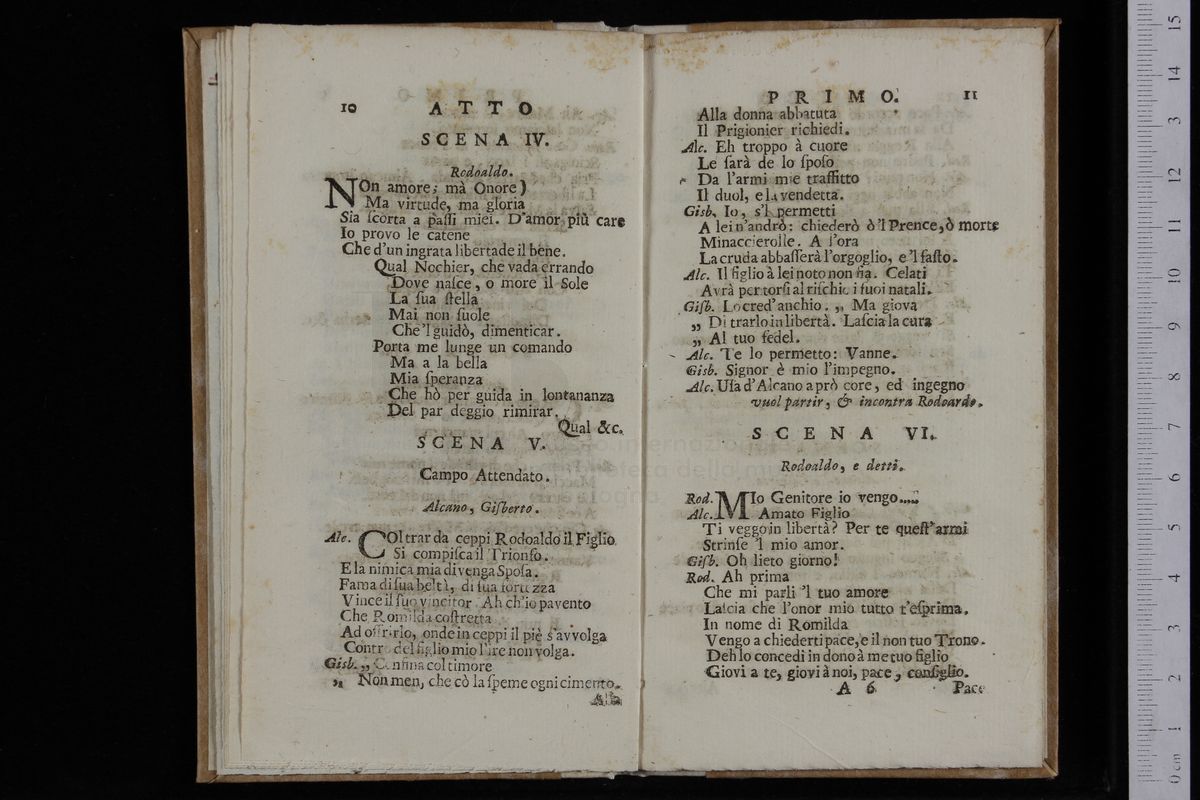 10 ATTO
SCENA IV.
Rodoaldo.
NOn amore; mà Onore)
Ma virtude, ma gloria
Sia ſcorta a paſſi miei. D'amor più care
Io provo le catene
Che d'un ingrata libertade il bene.
Qual Nochier, che vada errando
Dove naſce, o more il Sole
La ſua ſtella
Mai non ſuole
Che'l guidò, dimenticar.
Porta me lunge un comando
Ma a la bella
Mia ſperanza
Che hò per guida in lontananza
Del par deggio rimirar.
Qual &c.
SCENA V.
Campo Attendato.
Alcano, Giſberto.
Alc. COl trar da ceppi Rodoaldo il Figlio
Si compiſca il Trionfo.
E la nimica mia divenga Spoſa.
Fama di ſua beltà, di ſua
Vince il ſuo vincitor. Ah ch'io pavento
Che Romilda coſtretta
Ad offrirlo, onde in ceppi il piè s'avvolga
Contro del figlio mio l'ire non volga.
Gisb. „ Confina col timore
„ Non men, che cò la ſpeme ogni cimento.
PRIMO. 11
Alla donna abbatuta
Il Prigionier richiedi.
Alc. Eh troppo à cuore
Le ſarà de lo ſpoſo
Da l'armi mie traffitto
Il duol, e la vendetta.
Gisb. Io, s'l permetti
A lei n'andrò: chiederò ò'l Prence, ò morte
Minaccierolle. A l'ora
La cruda abbaſſerà l'orgoglio, e'l faſto.
Alc. Il figlio à lei noto non fia. Celati
Avrà per torſi al riſchio i ſuoi natali.
Giſb. Lo cred'anchio. „ Ma giova
„ Di trarlo in libertà. Laſcia la cura
„ Al tuo fedel.
Alc. Te lo permetto: Vanne.
Gisb. Signor è mio l'impegno.
Alc. Uſa d'Alcano a prò core, ed ingegno
vuol partir, & incontra Rodoardo.
SCENA VI.
Rodoaldo, e detti.
Rod. MIo Genitore io vengo.....
Alc. Amato Figlio
Ti veggo in libertà? Per te queſt'armi
Strinſe 'l mio amor.
Giſb. Oh lieto giorno!
Rod. Ah prima
Che mi parli 'l tuo amore
Laſcia che l'onor mio tutto t'eſprima.
In nome di Romilda
Vengo a chiederti pace, e il non tuo Trono.
Deh lo concedi in dono à me tuo figlio
Giovi a te, giovi à noi, pace, conſiglio.
A 6 Pace